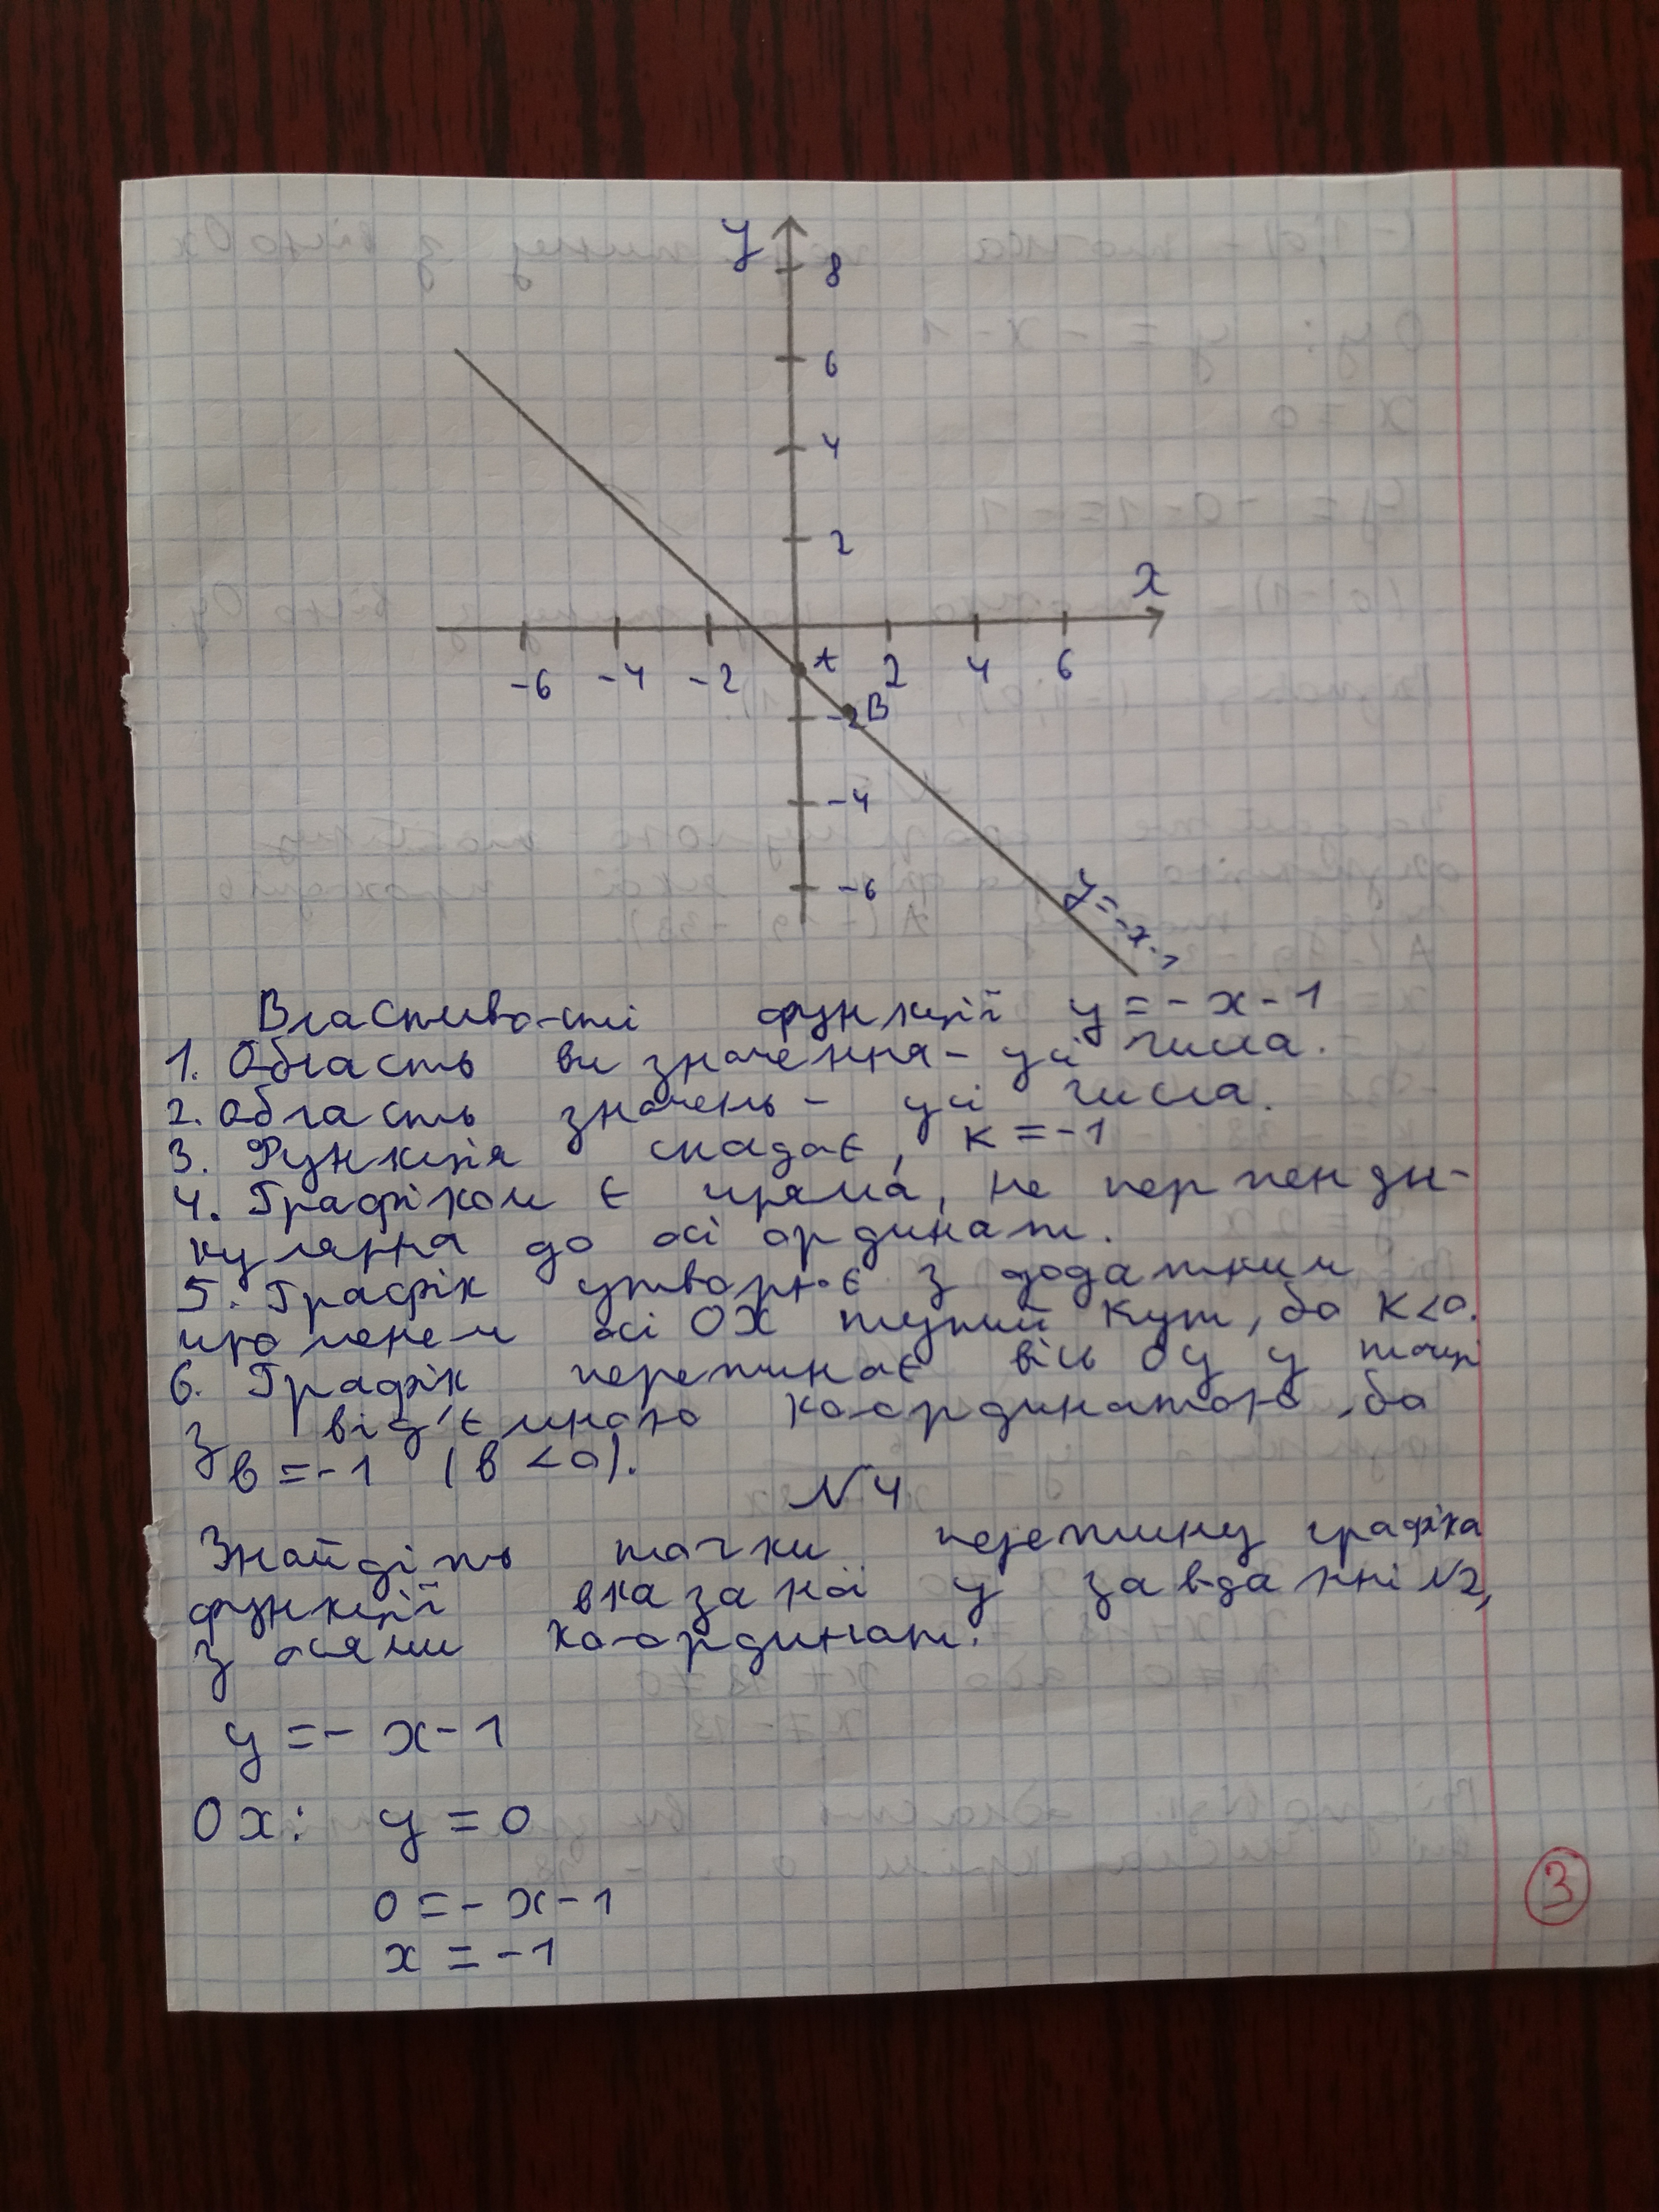 y
8
6
4
2
x
-6 -4 -2 A 2 4 6
-2 B
-4
-6
y=-x-1
Властивості функції y=-x-1
1. Область визначення - усі числа.
2. Область значень - усі числа.
3. Функція спадає, k=-1
4. Графіком є пряма, не перпенди-
кулярна до осі ординат.
5. Графік утворює з додатним
променем осі OX тупий кут, бо k<0.
6. Графік перетинає вісь Oy у точці
з від'ємною координатою, бо
b=-1 (b<0).
№4
Знайдіть точки перетину графіка
функції вказаної у завданні №2,
з осями координат.
y=-x-1
Ox: y=0
0=-x-1
x=-1
3